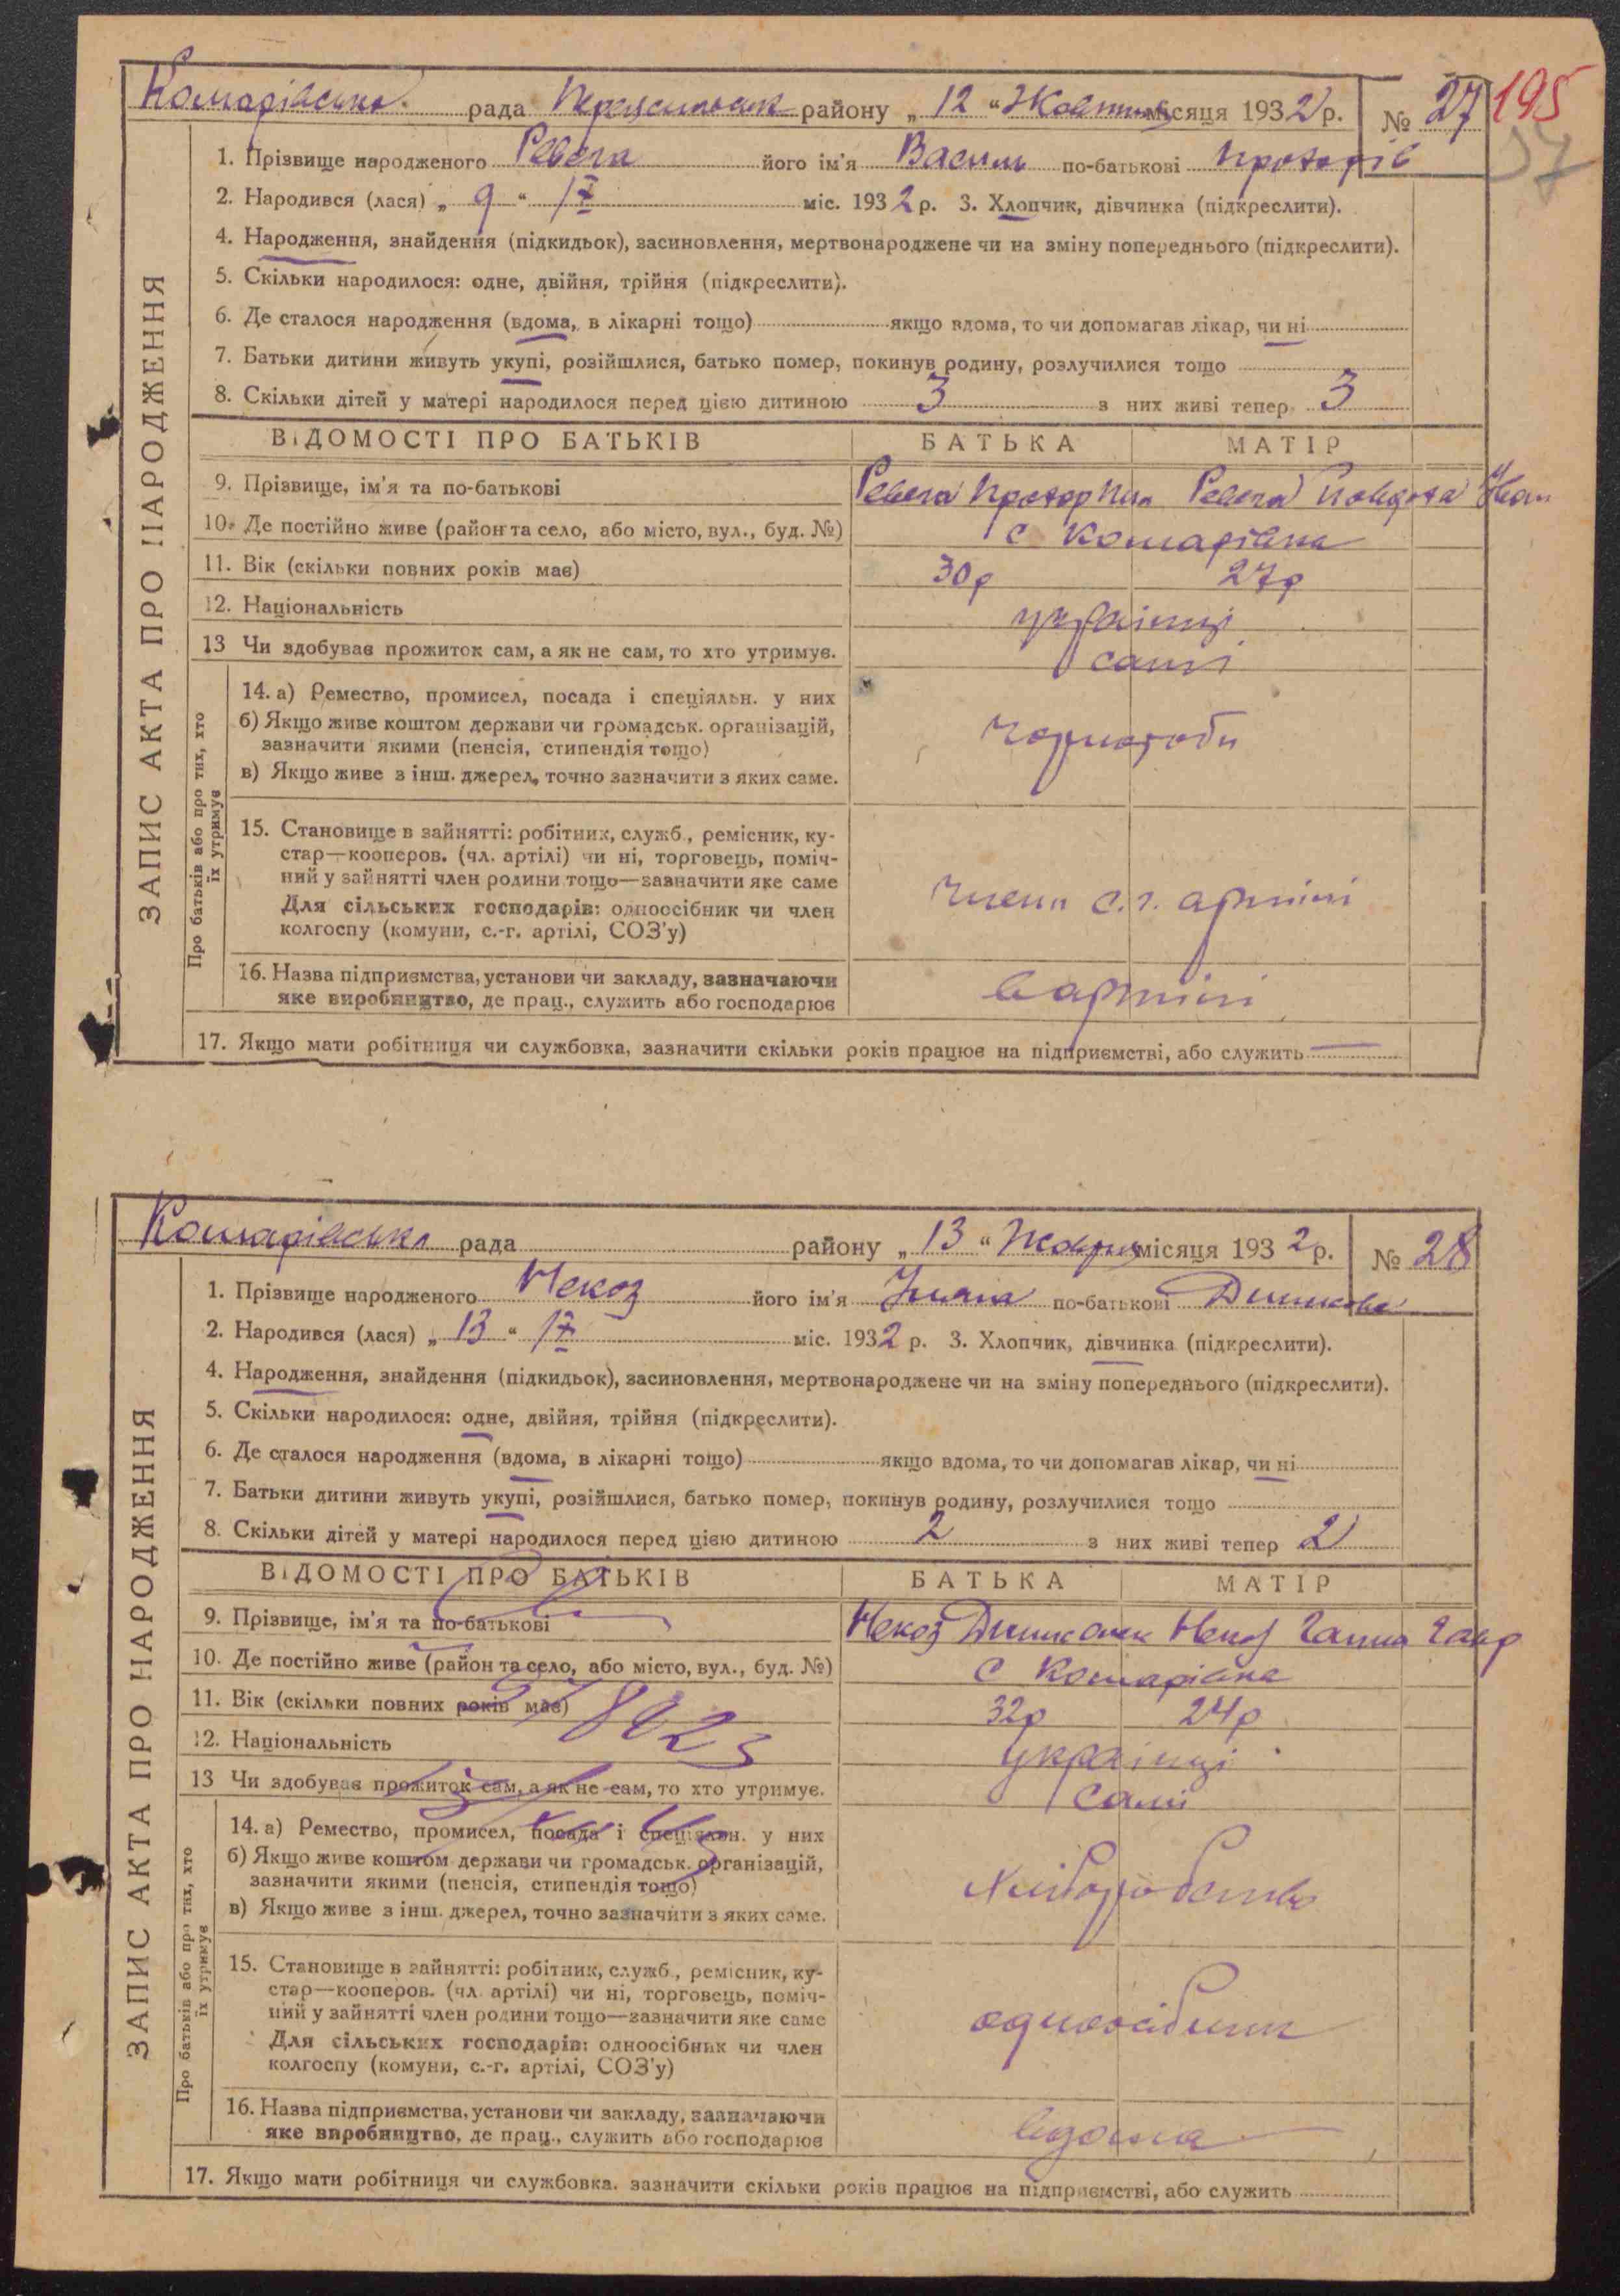 Комарівська рада район у „ 12 “ Жовтня місяця 1932 р. № 27 195
37
1. Прізвище народженого Ревега його ім'я Василь по-батькові
2. Народився (лася) „ 9 “ міс. 1932 р. 3. Хлопчик, дівчинка (підкреслити).
4. Народження, знайдення (підкидьок), засиновлення, мертвонароджене чи на зміну попереднього (підкреслити).
5. Скільки народилося: одне, двійня, трійня (підкреслити).
6. Де сталося народження (вдома, в лікарні тощо) якщо вдома, то чи допомагав лікар, чи ні
7. Батьки дитини живуть укупі, розійшлися, батько помер, покинув родину, розлучилися тощо
8. Скільки дітей у матері народилося перед цією дитиною 3 з них живі тепер 3
ВІДОМОСТІ ПРО БАТЬКІВ БАТЬКА МАТІР
9. Прізвище, ім'я та по-батькові Ревега Ревега
10. Де постійно живе (район та село, або місто, вул., буд. №) с Комарівка
11. Вік (скільки повних років має) 30р 27р
12. Національність українці
13 Чи здобував прожиток сам, а як не сам, то хто утримує. самі
14. а) Ремество, промисел, посада і спеціяльн. у них
б) Якщо живе коштом держави чи громадськ. організацій,
зазначити якими (пенсія, стипендія тощо)
в) Якщо живе з інш. джерел, точно зазначити з яких саме.
15. Становище в зайнятті: робітник, служб., ремісник, ку-
стар—кооперов. (чл. артілі) чи ні, торговець, поміч-
ний у зайнятті член родини тощо—зазначити яке саме
Для сільських господарів: одноосібник чи член
колгоспу (комуни, с.-г. артілі, СОЗ'у)
члени с.г. артілі
16. Назва підприємства, установи чи закладу, зазначаючи
яке виробництво, де прац., служить або господарює
в артілі
17. Якщо мати робітниця чи службовка, зазначити скільки років працює на підприємстві, або служить —
ЗАПИС АКТА ПРО НАРОДЖЕННЯ
Про батьків або про тих, хто
їх утримує
Комарівська рада району „ 13 “ Жовтня місяця 1932 р. № 28
1. Прізвище народженого Некоз його ім'я Уляна по-батькові
2. Народився (лася) „ 13 “ міс. 1932 р. 3. Хлопчик, дівчинка (підкреслити).
4. Народження, знайдення (підкидьок), засиновлення, мертвонароджене чи на зміну попереднього (підкреслити).
5. Скільки народилося: одне, двійня, трійня (підкреслити).
6. Де сталося народження (вдома, в лікарні тощо) якщо вдома, то чи допомагав лікар, чи ні
7. Батьки дитини живуть укупі, розійшлися, батько помер, покинув родину, розлучилися тощо
8. Скільки дітей у матері народилося перед цією дитиною 2 з них живі тепер 2
ВІДОМОСТІ ПРО БАТЬКІВ БАТЬКА МАТІР
9. Прізвище, ім'я та по-батькові Некоз Некоз Ганна Гавр
10. Де постійно живе (район та село, або місто, вул., буд. №) с Комарівка
11. Вік (скільки повних років має) 32р 24р
12. Національність українці
13 Чи здобував прожиток сам, а як не сам, то хто утримує. Самі
14. а) Ремество, промисел, посада і спеціяльн. у них
б) Якщо живе коштом держави чи громадськ. організацій,
зазначити якими (пенсія, стипендія тощо)
в) Якщо живе з інш. джерел, точно зазначити з яких саме.
Хліборобство
15. Становище в зайнятті: робітник, служб., ремісник, ку-
стар—кооперов. (чл. артілі) чи ні, торговець, поміч-
ний у зайнятті член родини тощо—зазначити яке саме
Для сільських господарів: одноосібник чи член
колгоспу (комуни, с.-г. артілі, СОЗ'у)
одноосібник
16. Назва підприємства, установи чи закладу, зазначаючи
яке виробництво, де прац., служить або господарює
вдома
17. Якщо мати робітниця чи службовка. зазначити скільки років працює на підприємстві, або служить
ЗАПИС АКТА ПРО НАРОДЖЕННЯ
Про батьків або про тих, хто
їх утримує